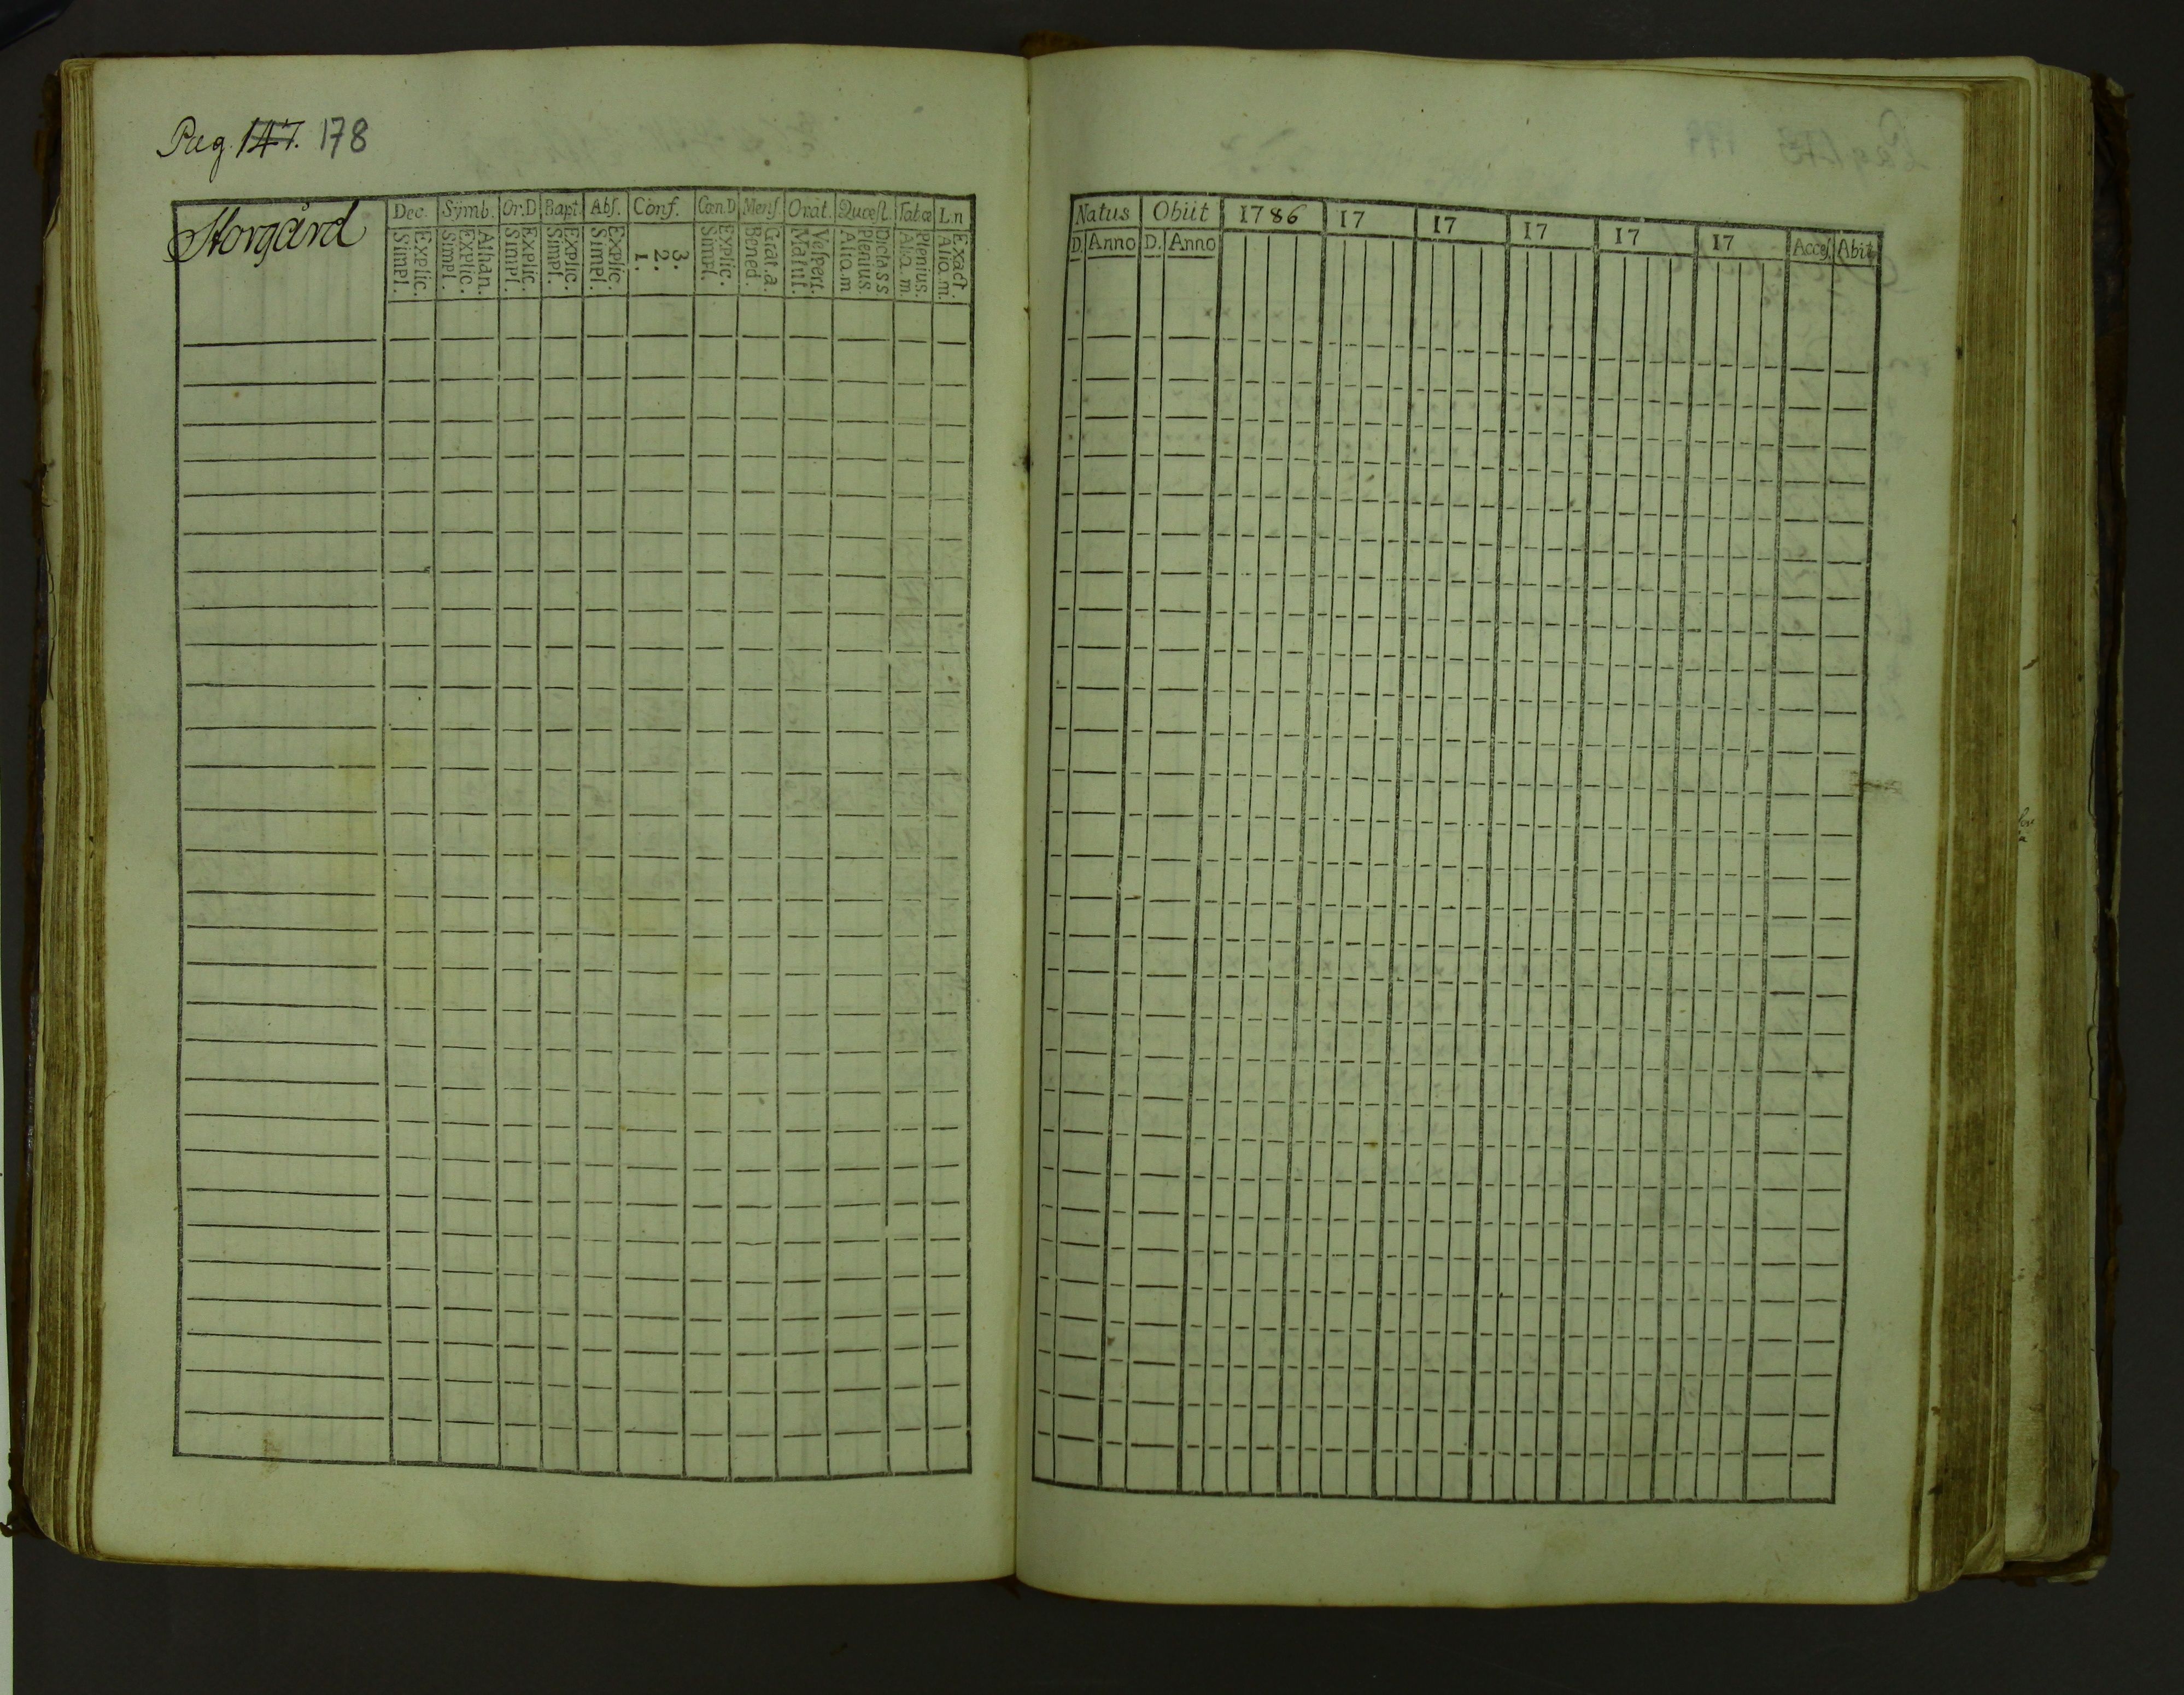 Pag. 147. 178
Storgård
Dec. Symb. Or.D Bapt. Abs. Conf. Cœn.D Mens. Orat. Quæst. Tab.œ L.n
Explic. Simpl. Athan. Explic. Simpl. Explic. Simpl. Explic. Simpl. Explic. Simpl. 3. 2. 1. Explic. Simpl. Grat.a. Bened. Vespert. Matut. Dicta s s Plenius. Aliq.m Plenius. Aliq.m. Exact. Aliq.m.
Natus Obiit 1786 17 17 17 17 17
D. Anno D. Anno Acces. Abit